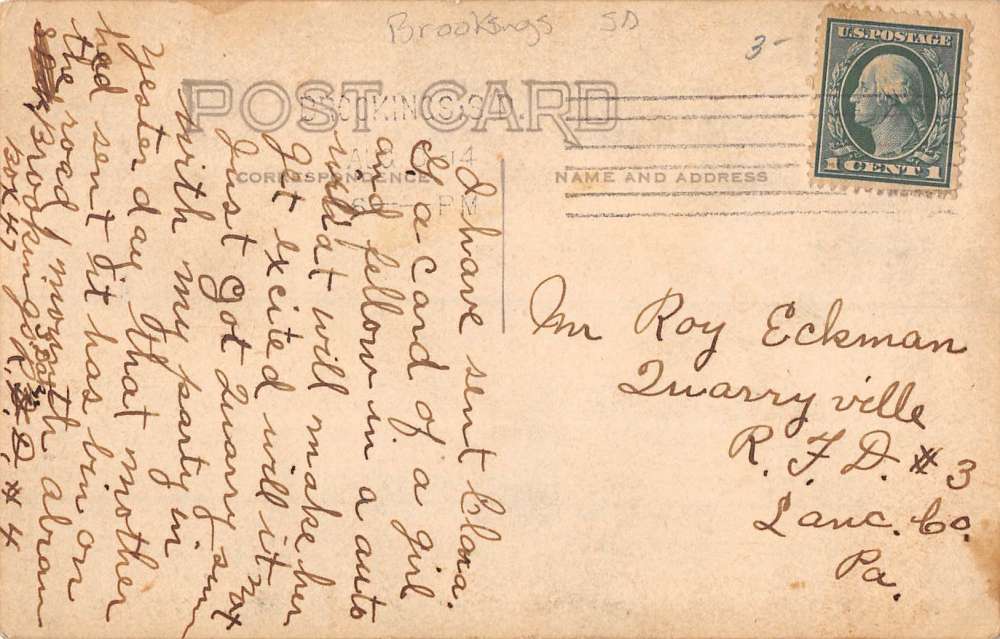 Brookings SD
3-
U.S. POSTAGE
1 CENTS 1
POST CARD
BROOKINGS, S.D.
14
PM
CORRESPONDENCE
NAME AND ADDRESS
I have sent Clara.
E. a card of a girl
and fellow in a auto
what will make her
get excited will it not
Just got Quarry
with my party in
Yester day that mother
had sent it has bin on
the road month
Abram
Brookings
S. D.
R. F. D. # 4
Box 47
Mr Roy Eckman
Quarryville
R. F. D. # 3
Lanc. Co.
Pa.